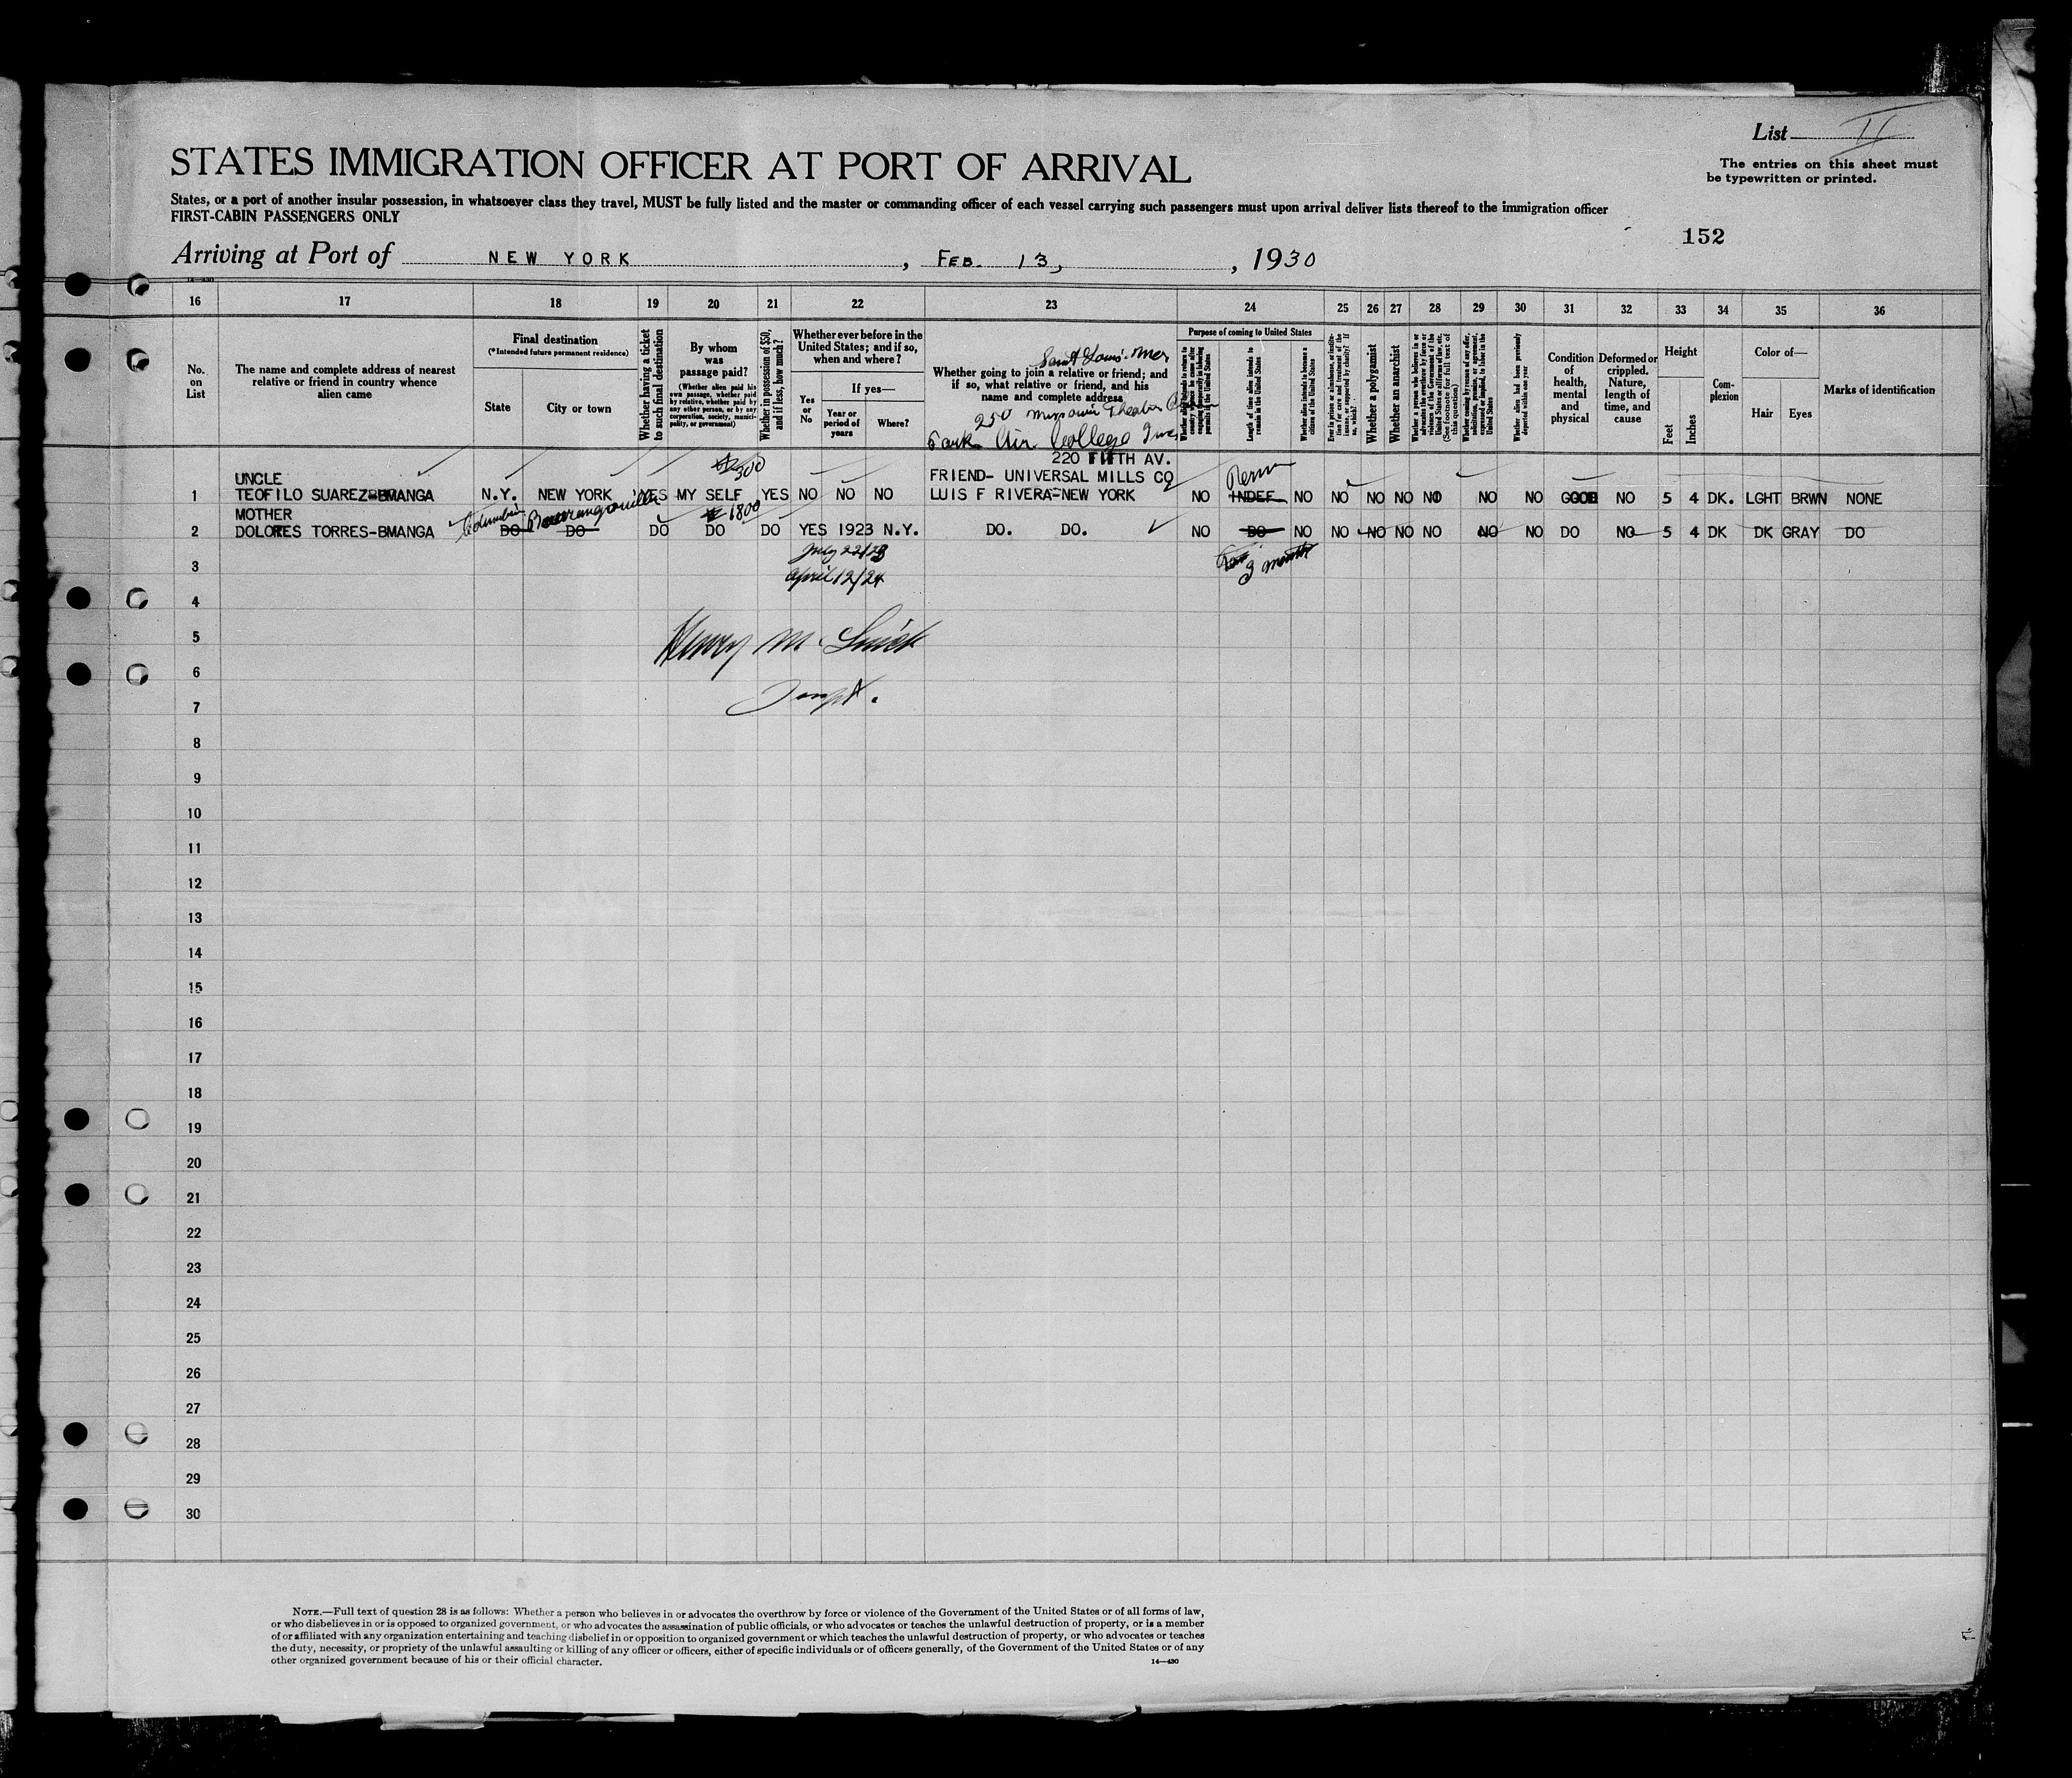 List II
The entries on this sheet must
be typewritten or printed.
STATES IMMIGRATION OFFICER AT PORT OF ARRIVAL
States, or a port of another insular possession, in whatsoever class they travel, MUST be fully listed and the master or commanding officer of each vessel carrying such passengers must upon arrival deliver lists thereof to the immigration officer
FIRST-CABIN PASSENGERS ONLY
152
Arriving at Port of NEW YORK, FEB. 13, 1930
16 17 18 19 20 21 22 23 24 25 26 27 28 29 30 31 32 33 34 35 36
No. on List
The name and complete address of nearest relative or friend in country whence alien came
Final destination
(*Intended future permanent residence)
State
City or town
Whether having a ticket to such final destination
By whom was passage paid?
(Whether alien paid his own passage, whether paid by relative, whether paid by any other person, or by any corporation, society, municipality, or government)
Whether in possession of $50, and if less, how much?
Whether ever before in the United States; and if so, when and where?
Yes or No
If yes—
Year or period of years
Where?
Whether going to join a relative or friend; and if so, what relative or friend, and his name and complete address
250
Park Air College
Purpose of coming to United States
Length of time alien intends to remain in the United States
Whether alien intends to become a citizen of the United States
Whether a polygamist
Whether an anarchist
Whether alien had been previously deported within one year
Condition of health, mental and physical
Deformed or crippled. Nature, length of time, and cause
Height
Feet
Inches
Complexion
Color of—
Hair
Eyes
Marks of identification
220 FIFTH AV.
300
UNCLE FRIEND- UNIVERSAL MILLS CO Perm
1 TEOFILO SUAREZ-BMANGA N.Y. NEW YORK YES MY SELF YES NO NO NO LUIS F RIVERA-NEW YORK NO INDEF NO NO NO NO NO NO NO GOOD NO 5 4 DK. LGHT BRWN NONE
MOTHER Columbia 1800
2 DOLORES TORRES-BMANGA DO DO DO DO DO YES 1923 N.Y. DO. DO. NO DO NO NO NO NO NO NO NO DO NO 5 4 DK DK GRAY DO
July 22/23
3 months
3
April 12/24
4
5
Henry M
6
7
8
9
10
11
12
13
14
15
16
17
18
19
20
21
22
23
24
25
26
27
28
29
30
NOTE.—Full text of question 28 is as follows: Whether a person who believes in or advocates the overthrow by force or violence of the Government of the United States or of all forms of law,
or who disbelieves in or is opposed to organized government, or who advocates the assassination of public officials, or who advocates or teaches the unlawful destruction of property, or is a member
of or affiliated with any organization entertaining and teaching disbelief in or opposition to organized government or which teaches the unlawful destruction of property, or who advocates or teaches
the duty, necessity, or propriety of the unlawful assaulting or killing of any officer or officers, either of specific individuals or of officers generally, of the Government of the United States or of any
other organized government because of his or their official character.
14—430